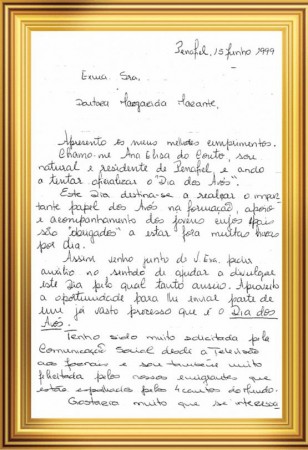 Penafiel, 15 Junho 1999
Exma. Sra.
Doutora Margarida Marante,
Apresento os meus melhores cumprimentos.
Chamo-me Ana Elisa do Couto, sou
natural e residente de Penafiel, e ando
a tentar oficializar o "Dia dos Avós".
Este Dia destina-se a realçar o impor
tante papel dos Avós na formação, apoio
e acompanhamento dos jovens cujos pais
são "obrigados" a estar fora muitas horas
por dia.
Assim venho junto de V. Exa. pedir
auxílio no sentido de ajudar a divulgar
este Dia pelo qual tanto anseio. Aproveito
a oportunidade para lhe enviar parte de
um já vasto processo que é o Dia dos
Avós.
Tenho sido muito solicitada pela
Comunicação Social desde a Televisão
aos jornais e sou também muito
felicitada pelos nossos emigrantes que
estão espalhados pelos 4 cantos do Mundo.
Gostaria muito que se interessa